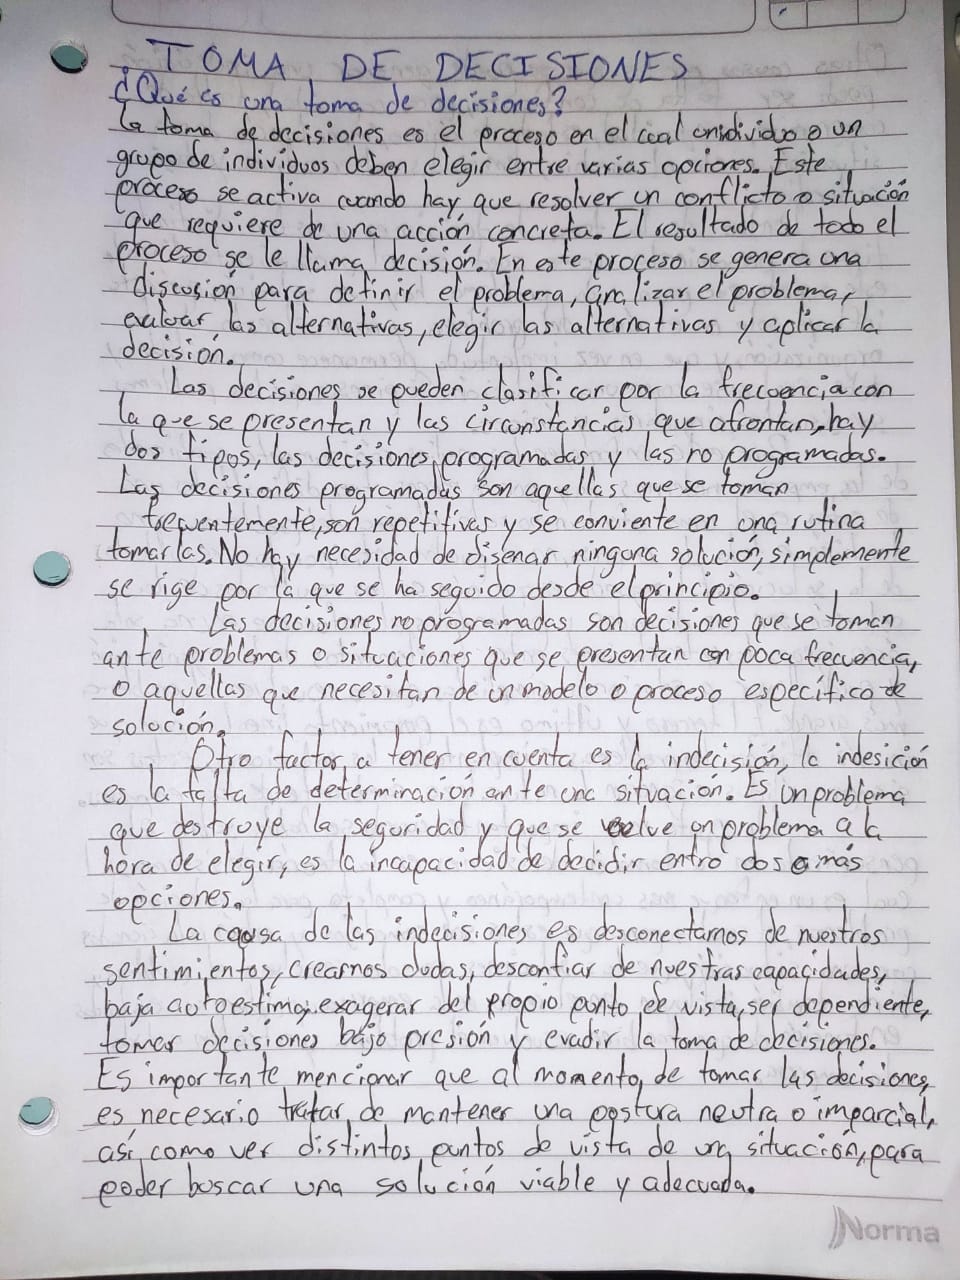 TOMA DE DECISIONES
¿Qué es una toma de decisiones?
La toma de decisiones es el proceso en el cual unindividuo o un
grupo de individuos deben elegir entre varias opciones. Este
proceso se activa cuando hay que resolver un conflicto o situación
que requiere de una acción concreta. El resultado de todo el
proceso se le llama decisión. En este proceso se genera una
discusión para definir el problema, analizar el problema,
evaluar las alternativas, elegir las alternativas y aplicar la
decisión.
Las decisiones se pueden clasificar por la frecuencia con
la que se presentan y las circunstancias que afrontan, hay
dos tipos, las decisiones programadas y las no programadas.
Las decisiones programadas son aquellas que se toman
frecuentemente, son repetitivas y se conviente en una rutina
tomarlas. No hay necesidad de diseñar ninguna solución, simplemente
se rige por la que se ha seguido desde el principio.
Las decisiones no programadas son decisiones que se toman
ante problemas o situaciones que se presentan con poca frecuencia,
o aquellas que necesitan de un modelo o proceso específico de
solución.
Otro factor a tener en cuenta es la indecisión, la indesición
es la falta de determinación ante una situación. Es un problema
que destruye la seguridad y que se vuelve un problema a la
hora de elegir, es la incapacidad de decidir entro dos o más
opciones.
La causa de las indecisiones es desconectarnos de nuestros
sentimientos, crearnos dudas, desconfiar de nuestras capacidades,
baja autoestima, exagerar del propio punto de vista, ser dependiente,
tomar decisiones bajo presión y evadir la toma de decisiones.
Es importante mencionar que al momento de tomar las decisiones,
es necesario tratar de mantener una postura neutra o imparcial,
así como ver distintos puntos de vista de una situación, para
poder buscar una solución viable y adecuada.
Norma